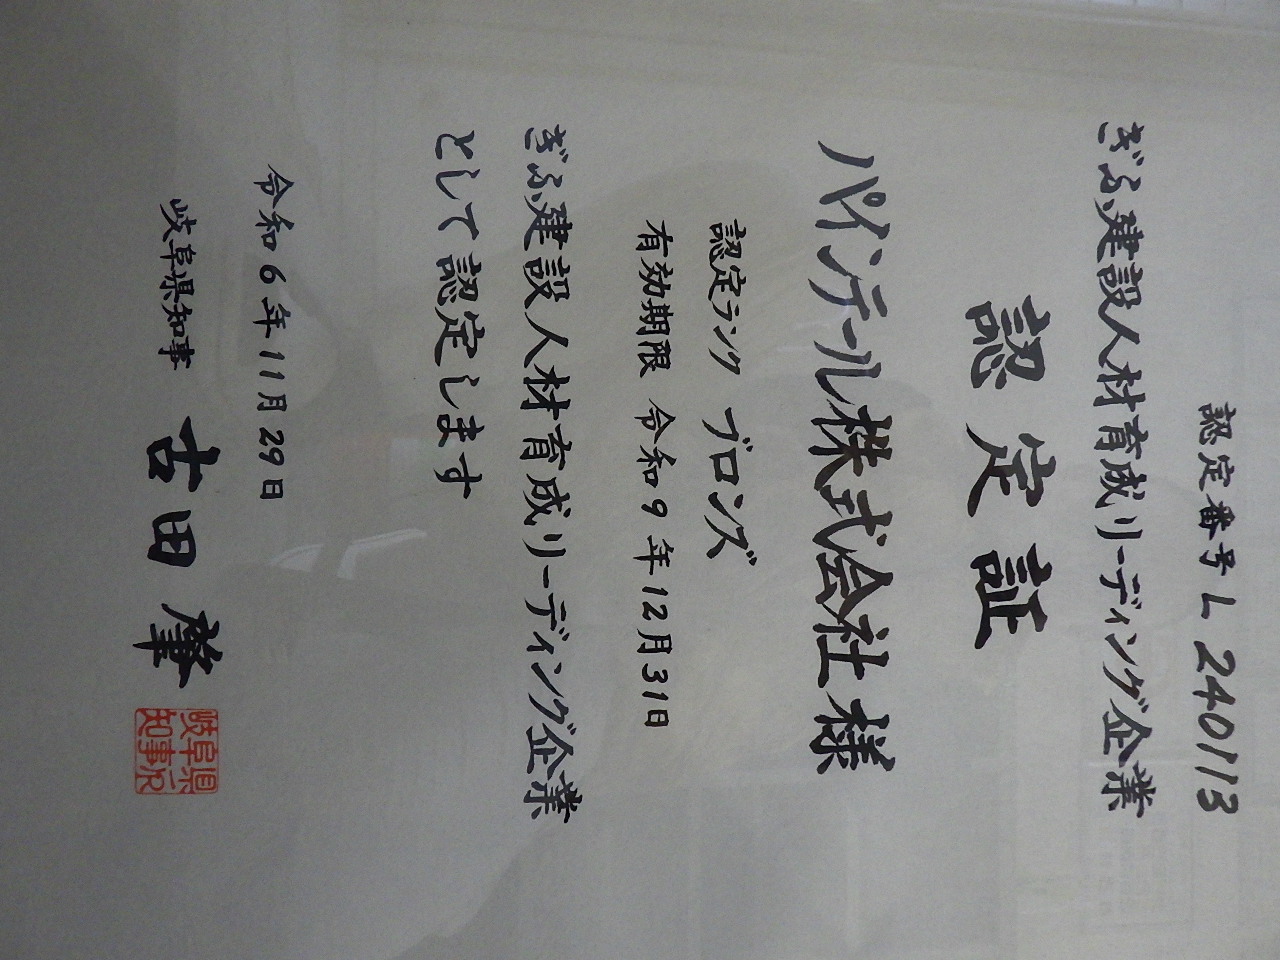 認定番号 L 240113
ぎふ建設人材育成リーディング企業
認定証
パインテール株式会社 様
認定ランク ブロンズ
有効期限 令和9年12月31日
ぎふ建設人材育成リーディング企業
として認定します
令和6年11月29日
岐阜県知事 古田 肇
岐阜県
知事